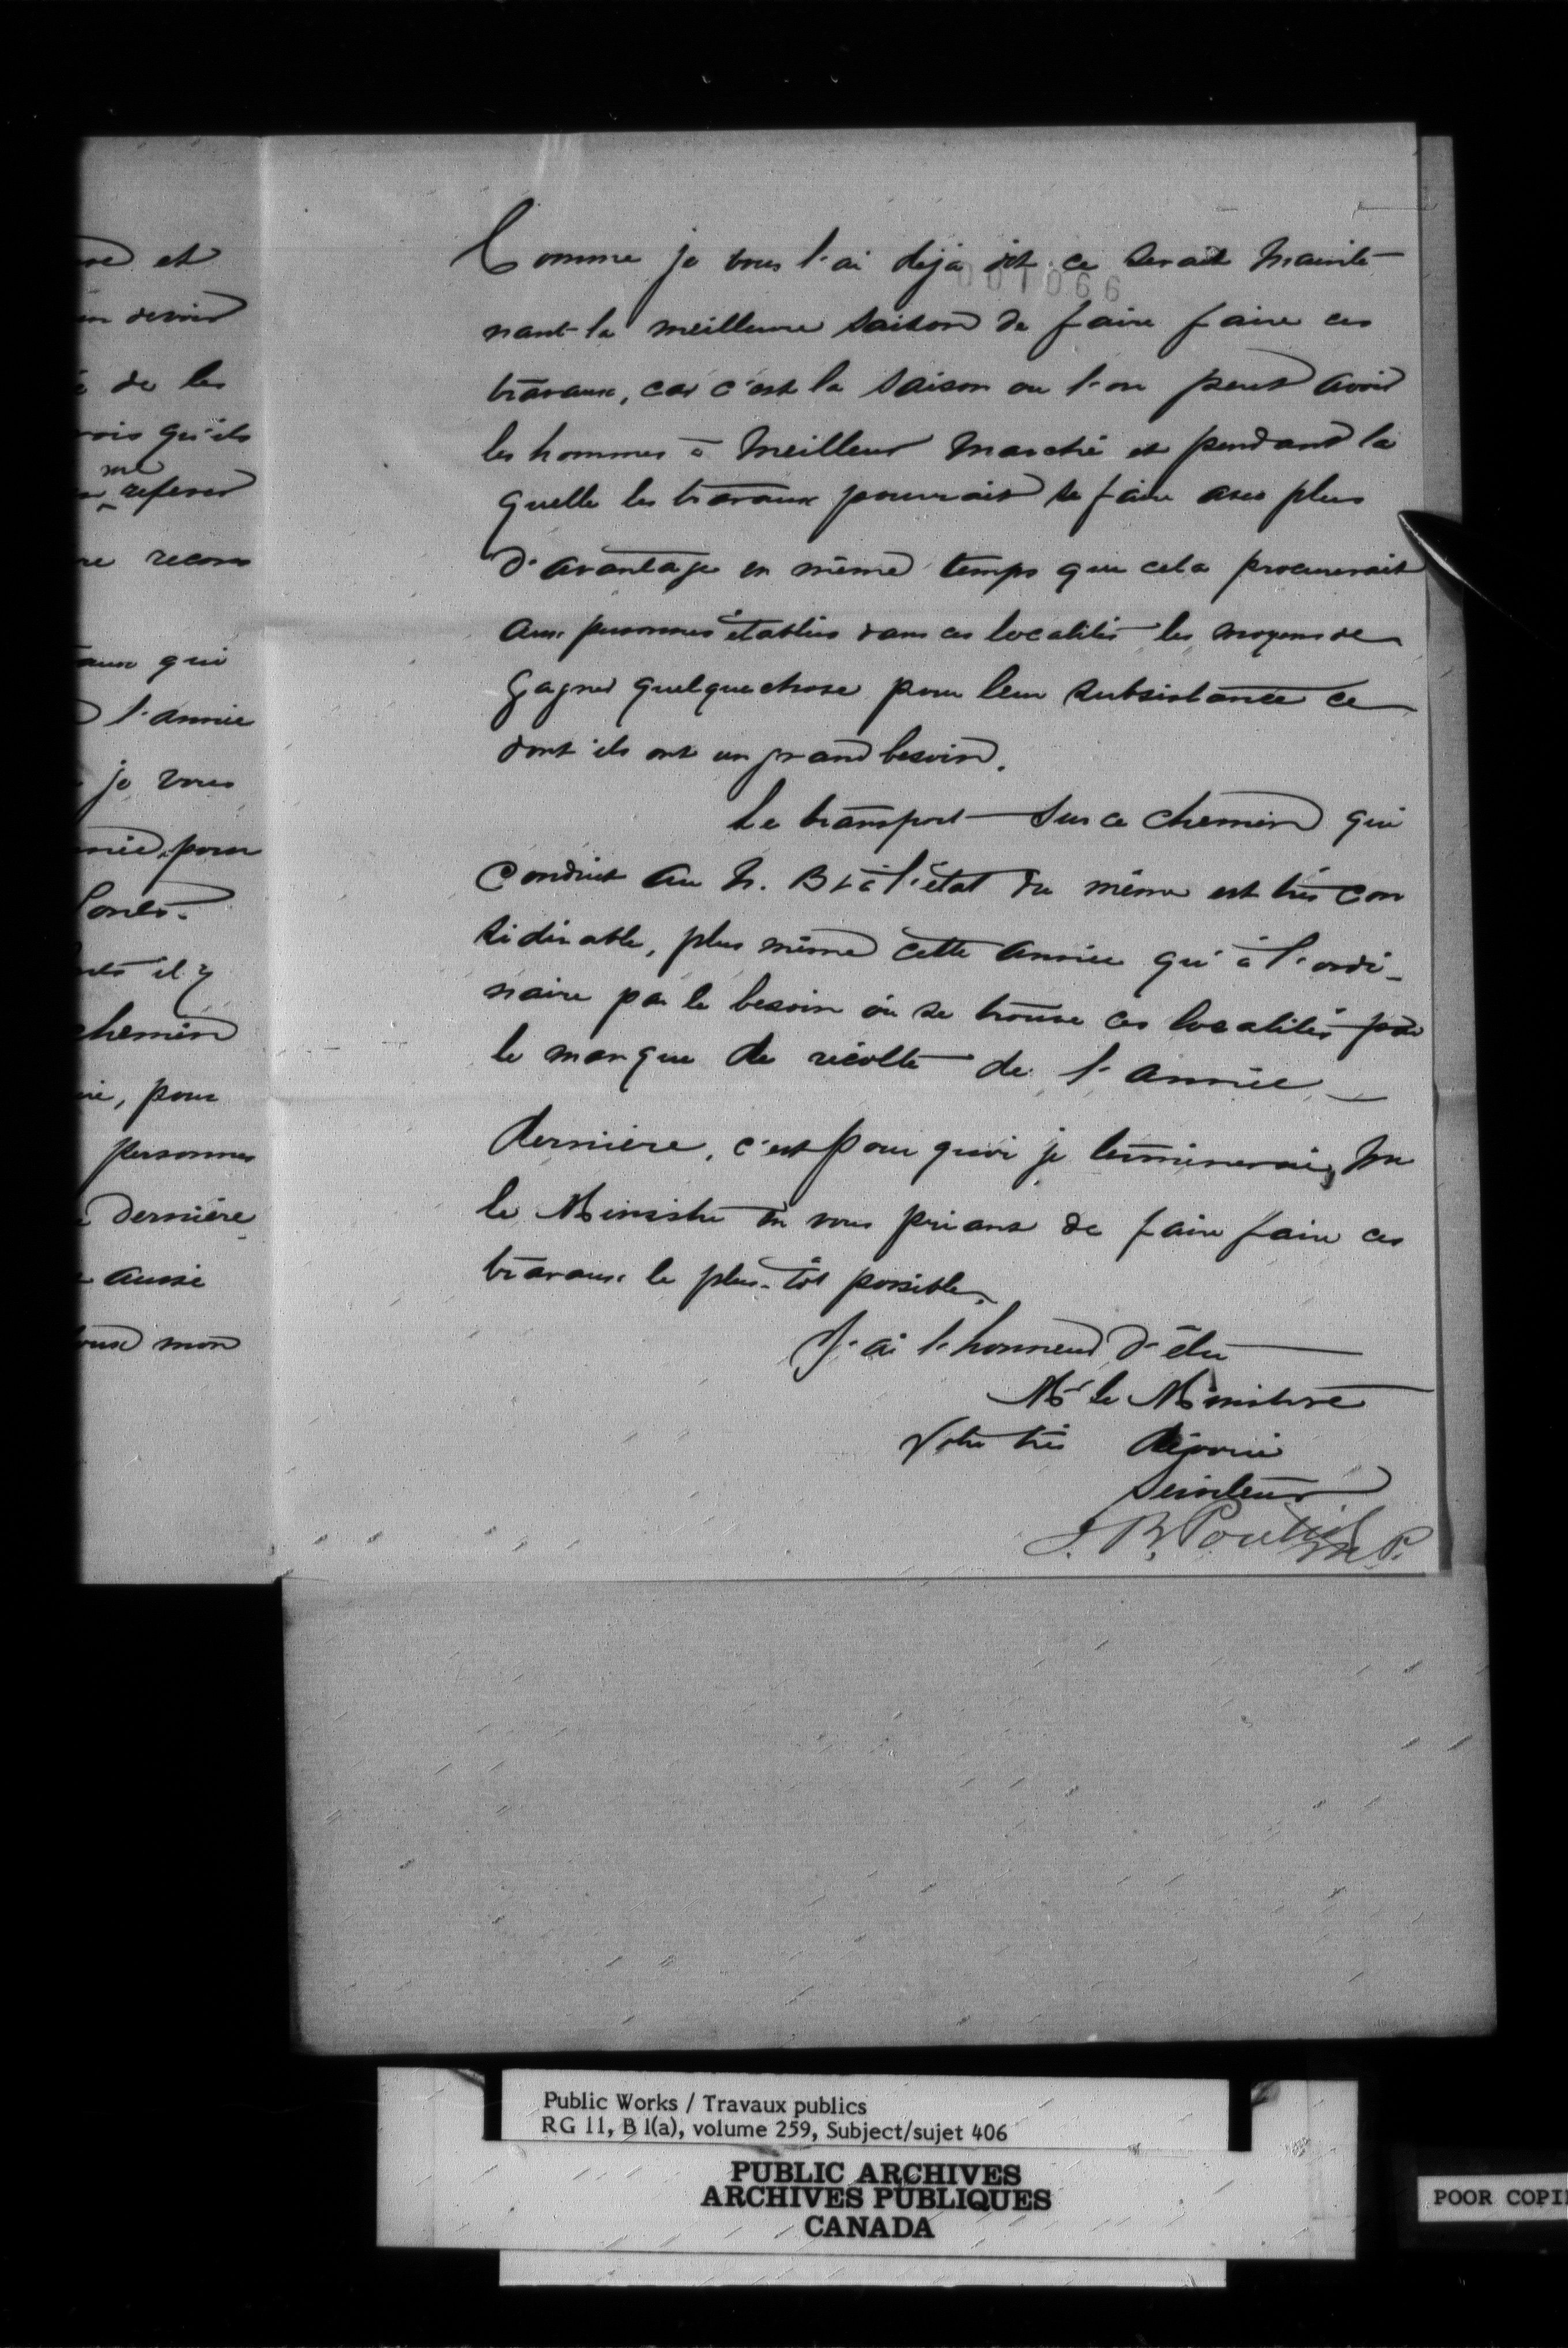 re et
en devoir
é de les
vois qu'ils
me
referer
re recons
aux qui
l'année
je vous
née, pour
ents il y
chemin
ie, pour
personnes
dernière
aussi
mon
001066
Comme je vous l'ai deja dit ce serait mainte-
nant la meilleure saison de faire faire ces
travaux, car c'est la saison ou l'on peut avoir
les hommes à meilleur marché et pendant la
quelle les travaux pourrait se faire avec plus
d'avantage en même temps que cela procurerait
aux personnes établies dans ces localités les moyens de
gagner quelquechose pour leur subsistance ce
dont ils ont un grand besoin.
Le transport sur ce chemin qui
conduit au N. B & à l'état du même est très con
sidérable, plus même cette année qu'à l'ordi-
naire par le besoin où se trouve ces localités par
le manque de récolte de l'année
dernière, c'est pour quoi je terminerai, Mr
le Ministre en vous priant de faire faire ces
travaux le plus-tôt possible.
J'ai l'honneur d'être
Mr le Ministre
Votre très dévoué
Serviteur
J. B. Pouliot M.P.
Public Works / Travaux publics
RG 11, B 1(a), volume 259, Subject/sujet 406
PUBLIC ARCHIVES
ARCHIVES PUBLIQUES
CANADA
POOR COPI